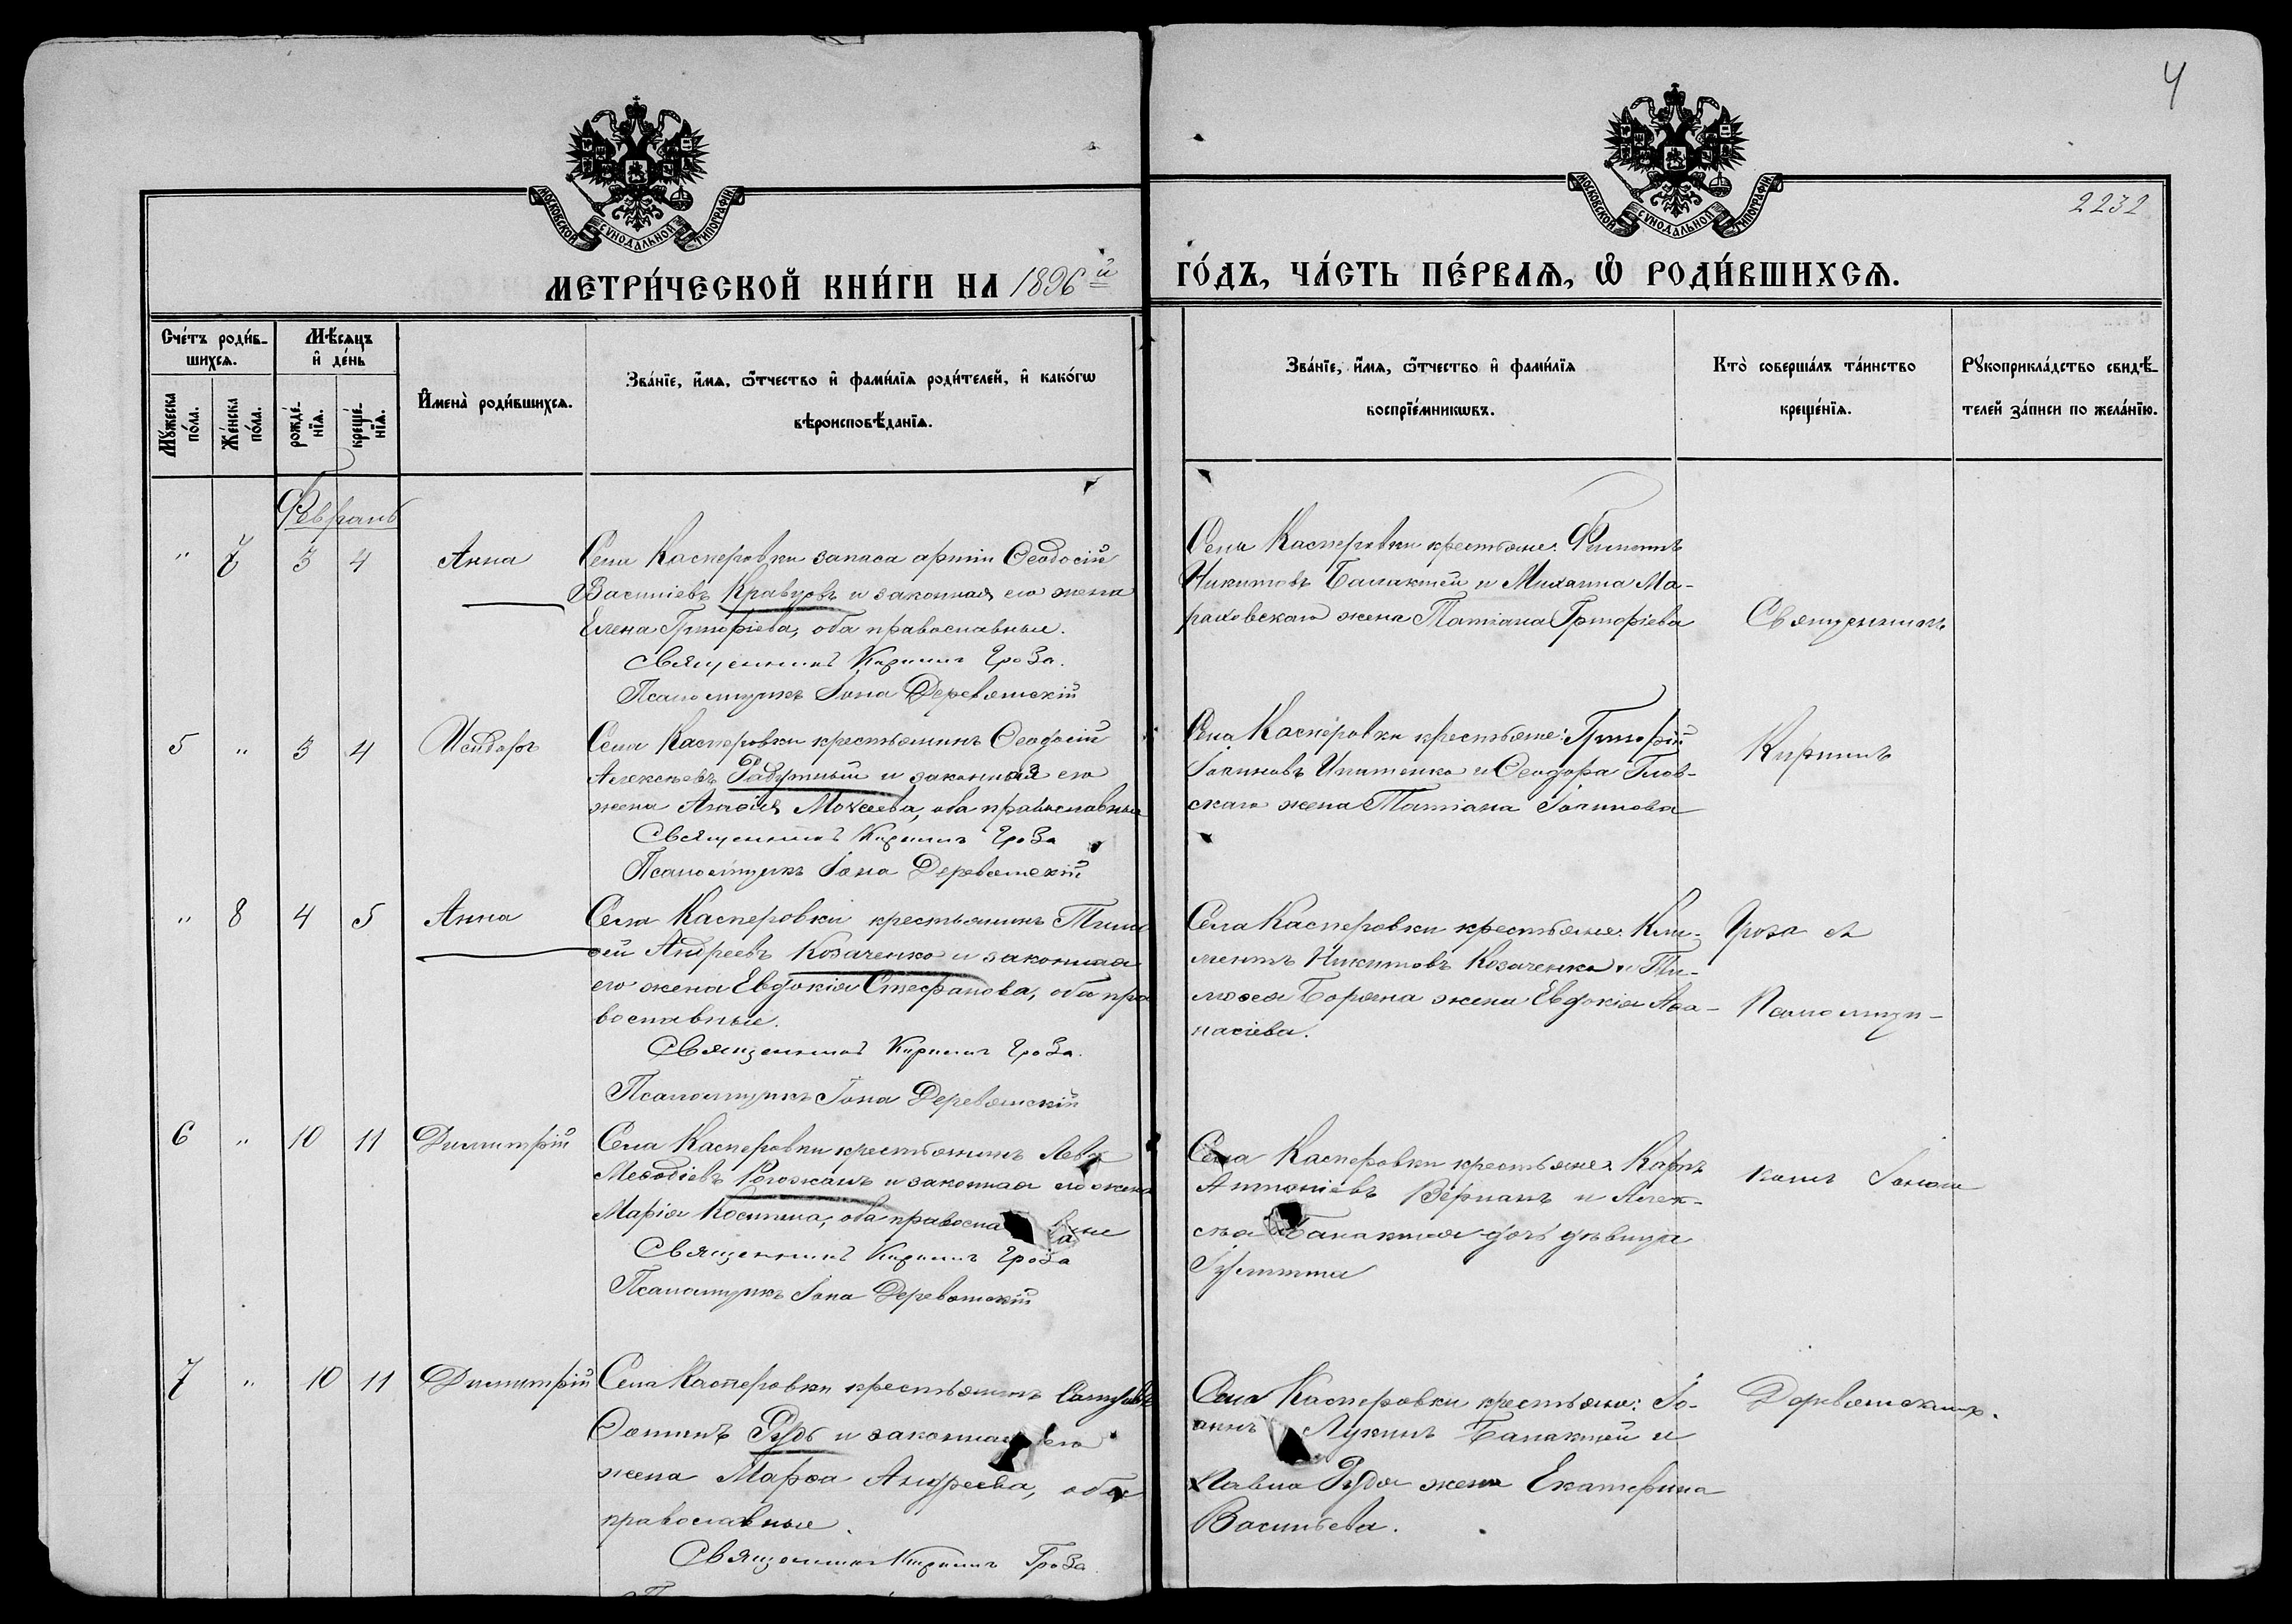 4
МОСКОВСКОЙ СѴНОДАЛЬНОЙ ТИПОГРАФІИ
МОСКОВСКОЙ СѴНОДАЛЬНОЙ ТИПОГРАФІИ
2232
МЕТРИ́ЧЕСКОЙ КНИ́ГИ НА 1896й
ГО́ДЪ, ЧА́СТЬ ПЕ́РВАѦ, Ѽ РОДИ́ВШИХСѦ.
Сче́тъ роди́в-
шихсѧ.
Мѣ́сѧцъ
и҆ де́нь
Мꙋ́жеска
по́ла.
Же́нска
по́ла.
рожде́-
нїѧ.
креще́-
нїѧ.
И҆мена̀ роди́вшихсѧ.
Зва́нїе, и҆́мѧ, ѻ҆́тчество и҆ фами́лїѧ роди́телей, и҆ како́гѡ
вѣроисповѣ́данїѧ.
Зва́нїе, и҆́мѧ, ѻ҆́тчество и҆ фами́лїѧ
воспрїе́мникѡвъ.
Кто̀ соверша́лъ та́инство
креще́нїѧ.
Рꙋкоприкла́дство свидѣ́-
телей за́писи по жела́нїю.
Февраль
" 7 3 4 Анна
Села Касперовки запаса арміи Ѳеодосій
Василіевъ Кравцовъ и законная его жена
Елена Григоріева, оба православные.
Священникъ Кириллъ Гроза.
Псаломщикъ Іона Деревянскій
Села Касперовки крестьяне: Филиппъ
Никитовъ Балакшей и Михаила Ма-
раховскаго жена Татіана Григоріева
Священникъ
5 " 3 4 Исидоръ
Села Касперовки крестьянинъ Ѳеодосій
Алексѣевъ Радушный и законная его
жена Моѵсеева, оба православные
Священникъ Кириллъ Гроза
Псаломщикъ Іона Деревянскій
Села Касперовки крестьяне: Григорій
Іоакимовъ Ипатенко и Ѳеодора Глов-
скаго жена Татіана Іоакимова
Кириллъ
" 8 4 5 Анна
Села Касперовки крестьянинъ Тимо
ѳей Андреевъ Козаченко и законная
его жена Евдокія Стефанова, оба пра
вославные.
Священникъ Кириллъ Гроза.
Псаломщикъ Іона Деревянскій
Села Касперовки крестьяне: Кли-
ментъ Никитовъ Козаченко и Ти-
моѳея Боряна жена Евдокія Аѳа-
насіева.
Гроза съ
Псаломщи-
6 " 10 11 Димитрій
Села Касперовки крестьянинъ Левъ
Меѳодіевъ Рогожанъ и законная его жена
Марія Косьмина, оба православные
Священникъ Кириллъ Гроза
Псаломщикъ Іона Деревянскій
Села Касперовки крестьяне: Карпъ
Антоніевъ Верланъ и Алек-
сѣя Балакшея дочь дѣвица
Іулитта
комъ Іоною
7 " 10 11 Димитрій
Села Касперовки крестьянинъ
Ѳоминъ Рудь и законная его
жена Марѳа Андреева, оба
православные.
Священникъ Кириллъ Гроза.
Села Касперовки крестьяне: Іо-
аннъ Лукинъ Балакшей и
Павла Рудя жена Екатерина
Васильева.
Деревянскимъ.